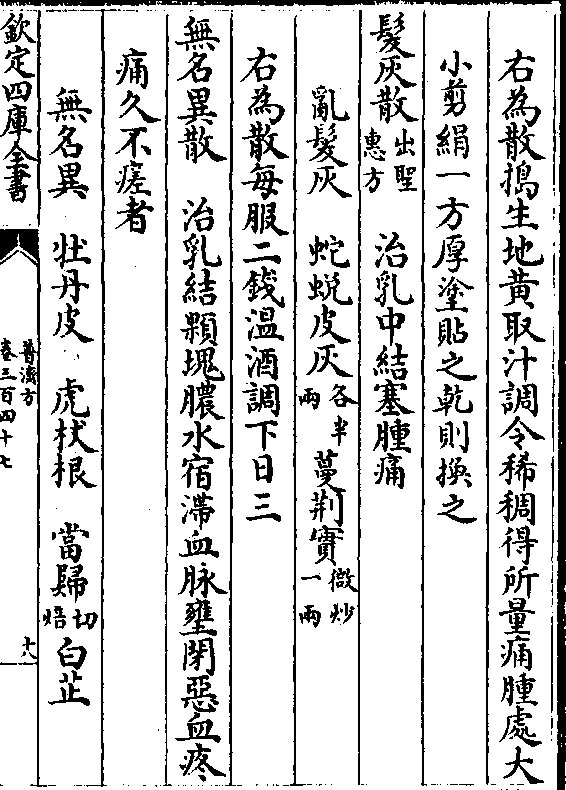 右為散搗生地黃取汁調令稀稠得所量痛腫處大
小剪絹一方厚塗貼之乾則換之
髮灰散出聖惠方　治乳中結塞腫痛
亂髮灰　蛇蛻皮灰各半兩　蔓荆實微炒一兩
右為散每服二錢温酒調下日三
無名異散　治乳結顆塊膿水宿滯血脉壅閉惡血疼
痛久不瘥者
無名異　牡丹皮　虎杖根　當歸切焙　白芷
欽定四庫全書
普濟方
卷三百四十七
十八